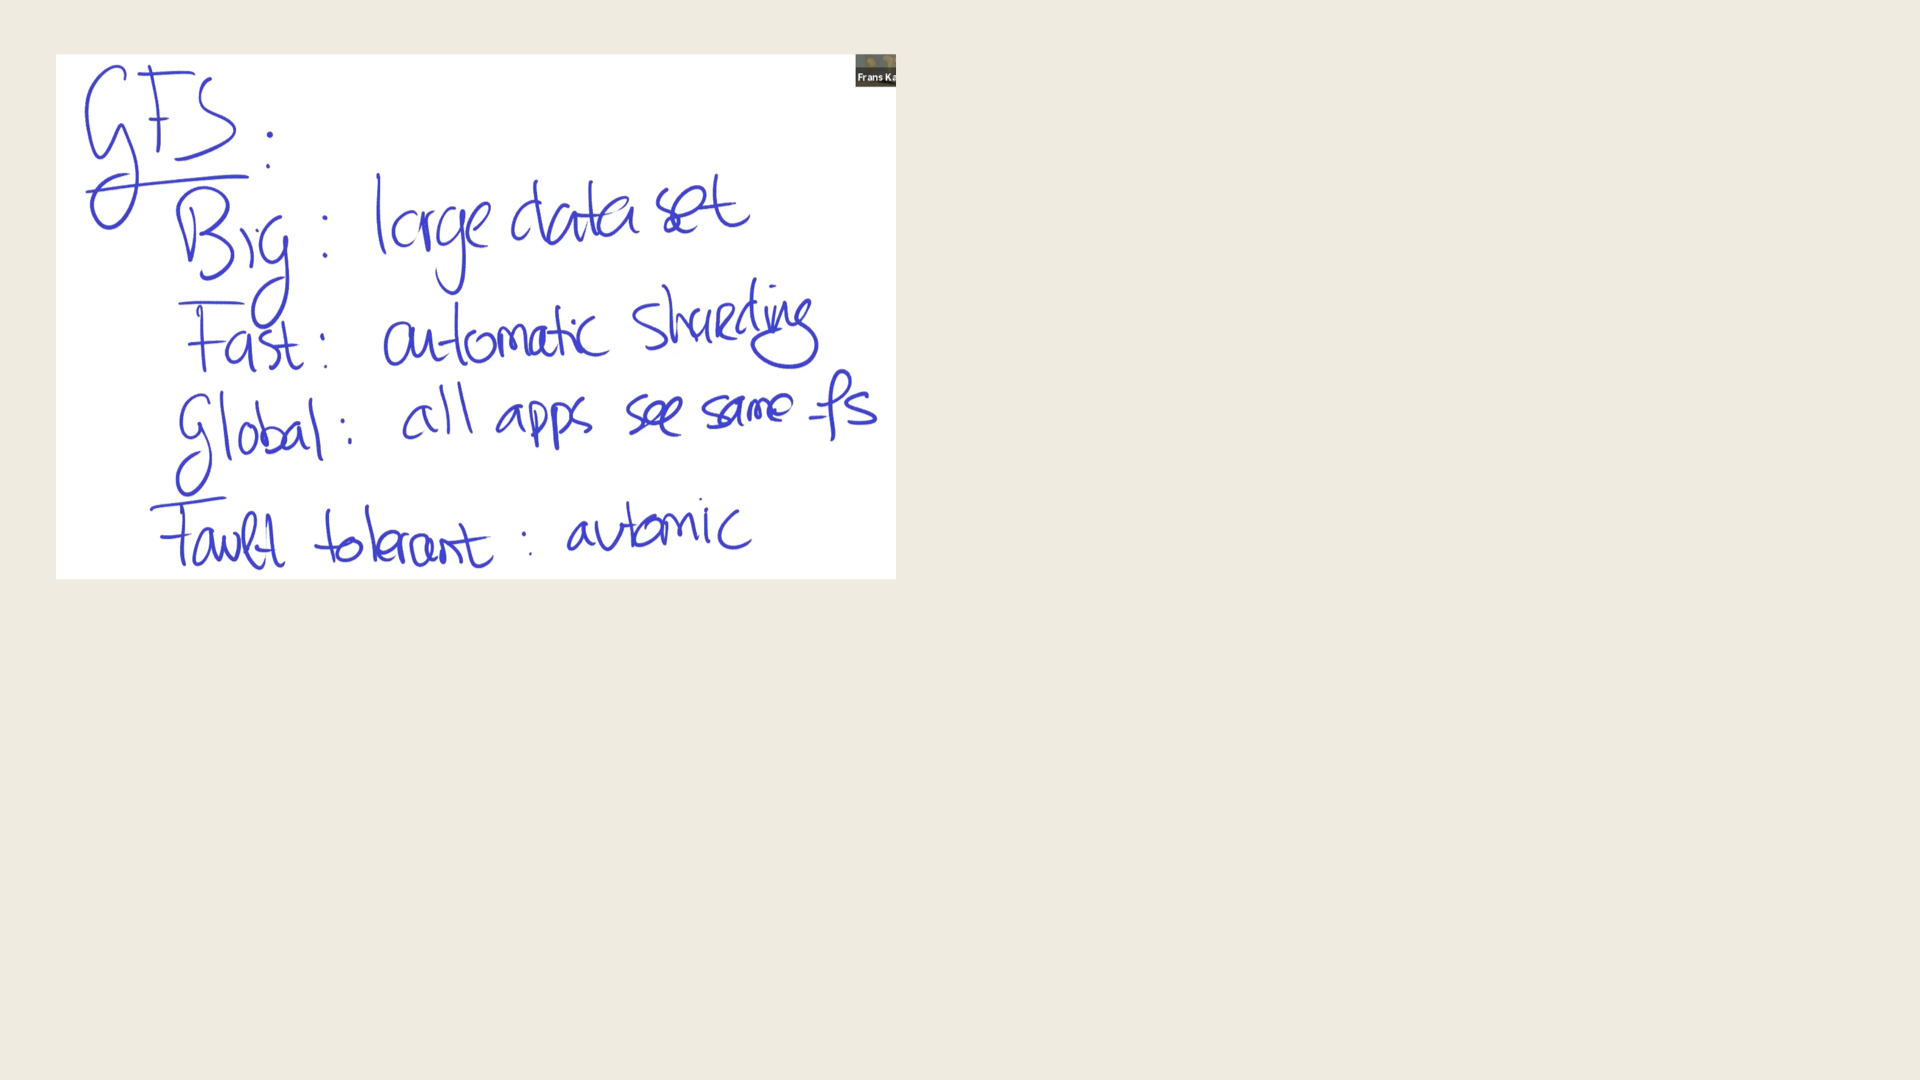 GFS:
Big: large data set
Fast: automatic sharding
Global: all apps see same fs
Fault tolerant: automic
Frans Ka